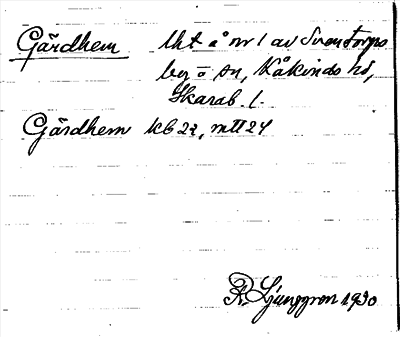 Gärdhem lht å nr 1 av Svenstorps
by o sn, Kåkinds hd,
Skarab. l.
Gärdhem kb 22, mtl 24
R. Ljunggren 1930